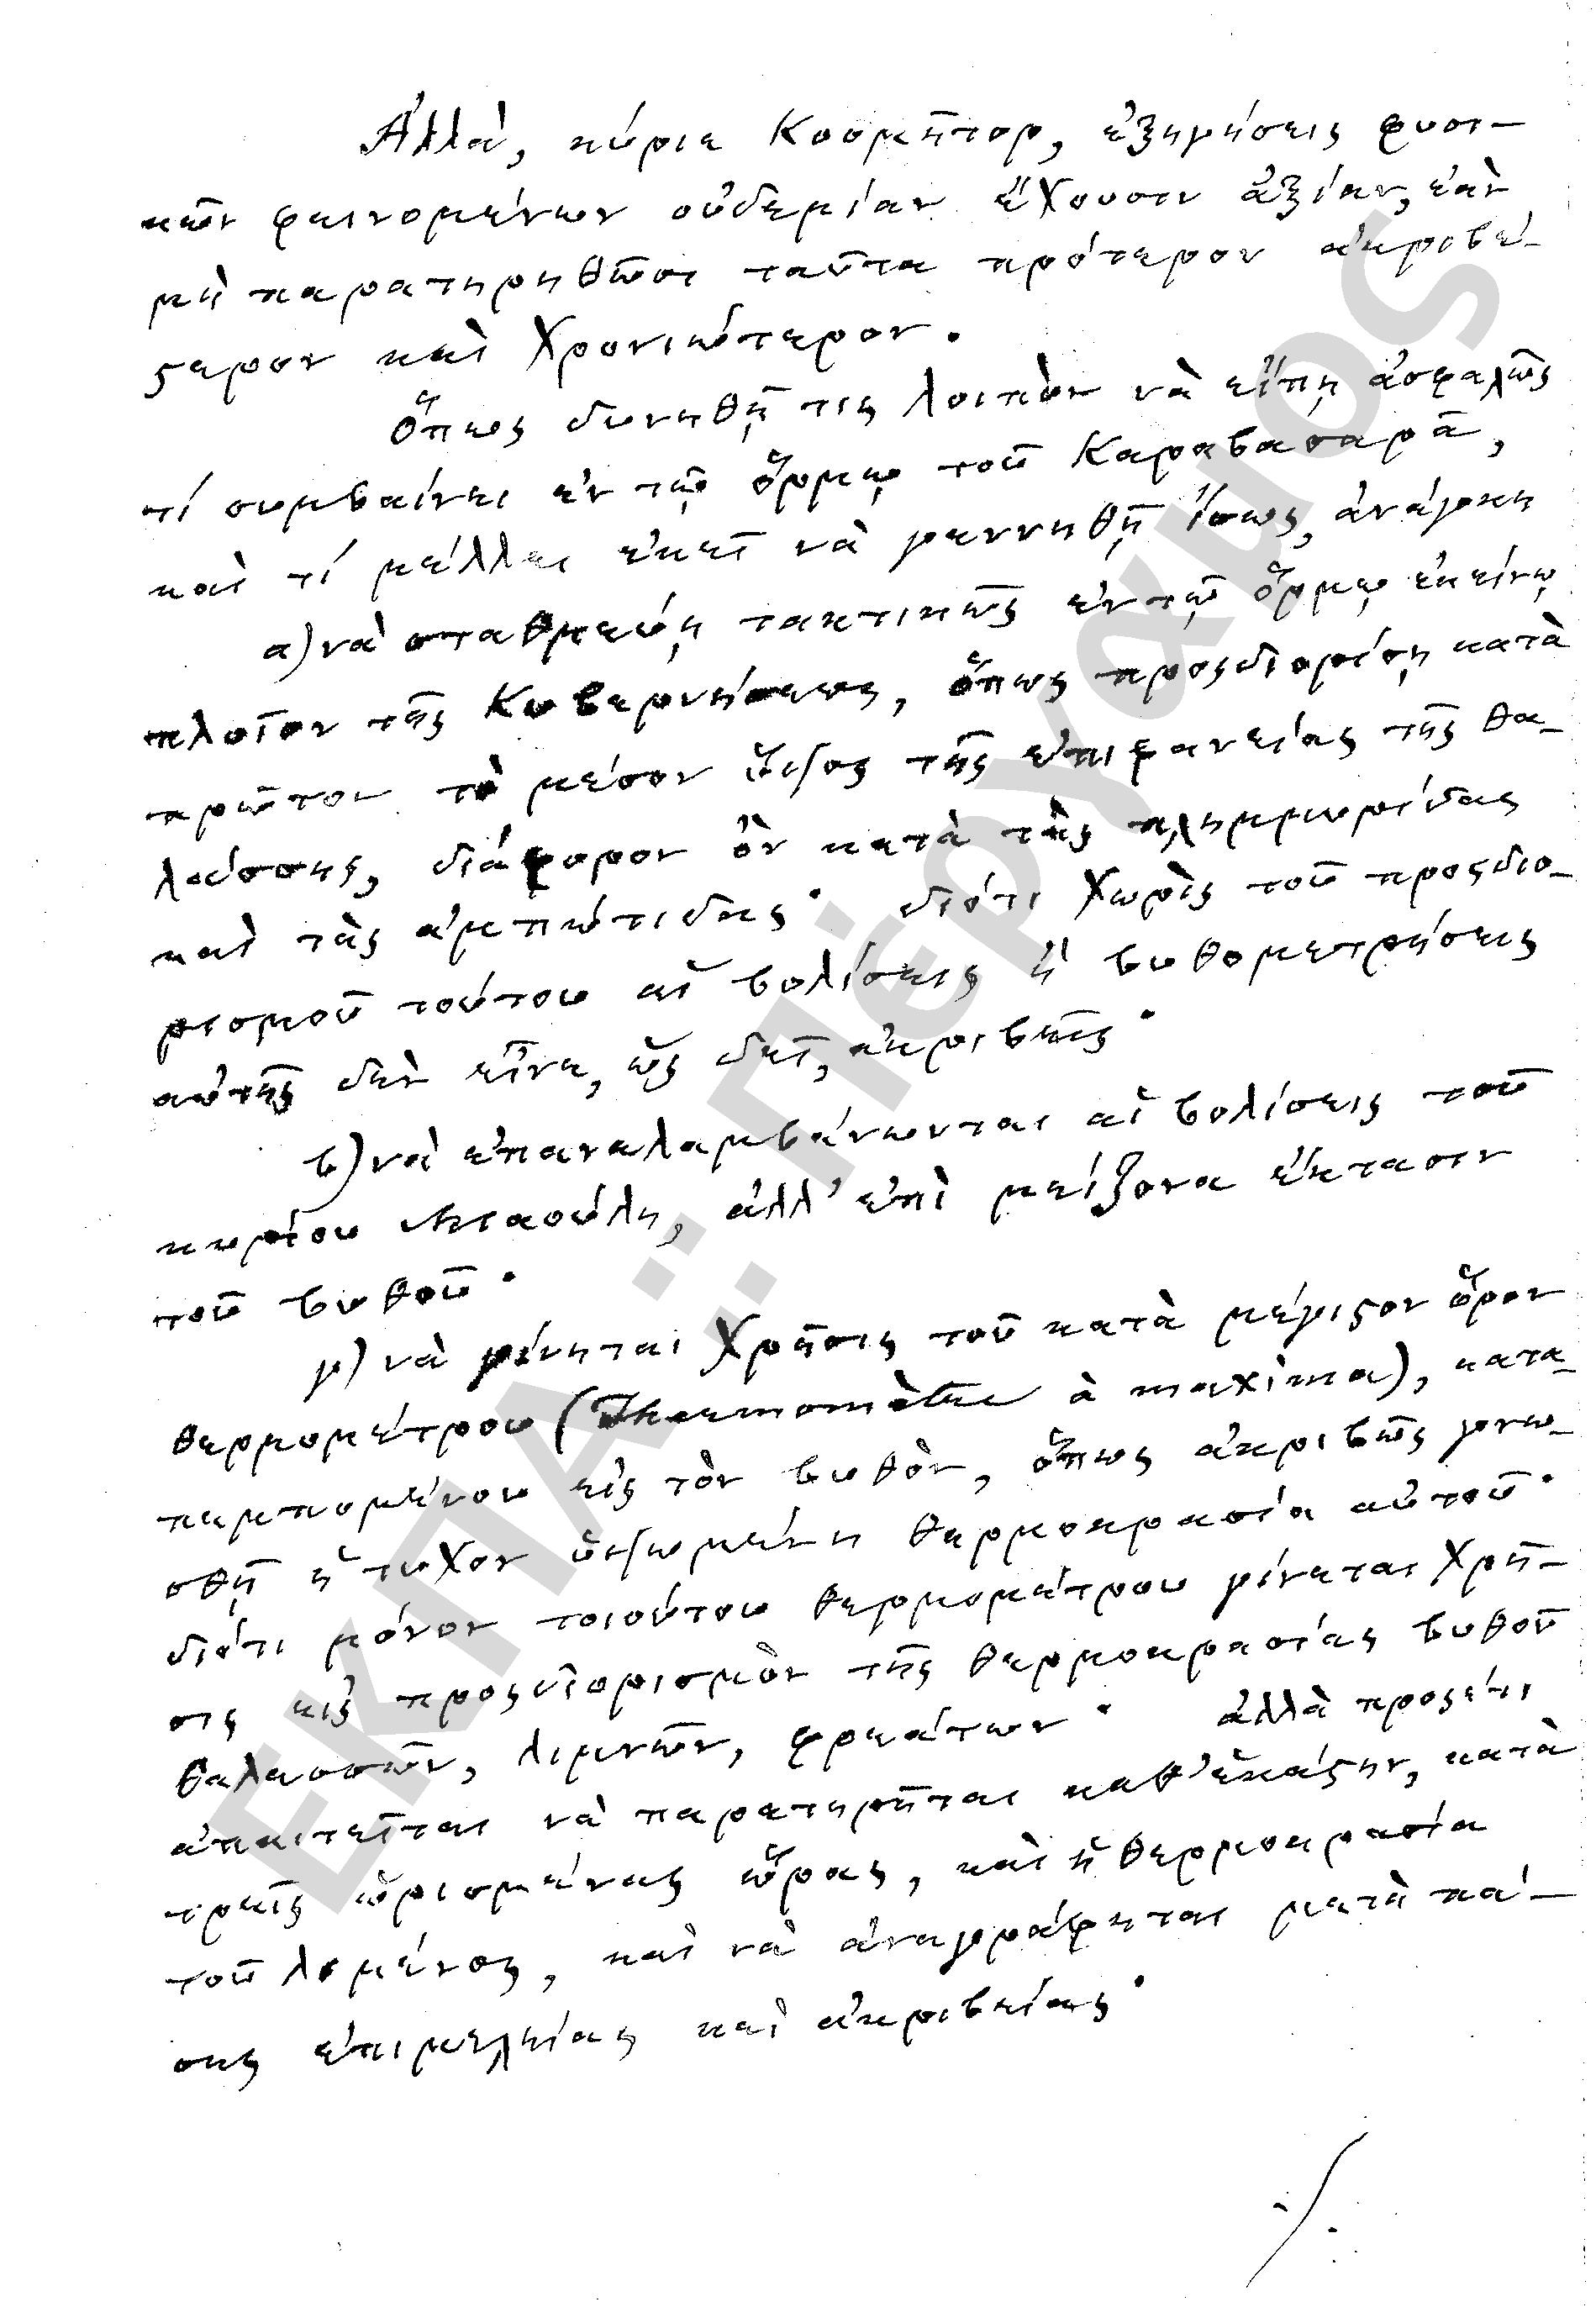 Ἀλλὰ, κύριε Κοσμῆτορ, ἐξηγήσεις φυσι-
κῶν φαινομένων οὐδεμίαν ἔχουσιν ἀξίαν, ἐὰν
μὴ παρατηρηθῶσι ταῦτα πρότερον ἀκριβέ-
ϛερον καὶ χρονιώτερον.
Ὅπως δυνηθῇ τις λοιπὸν νὰ εἴπῃ ἀσφαλῶς
τί συμβαίνει ἐν τῷ ὅρμῳ τοῦ Καραβασαρᾶ,
καὶ τί μέλλει ἐκεῖ νὰ γεννηθῇ ἴσως, ἀνάγκη
α) νὰ σταθμεύῃ τακτικῶς ἐν τῷ ὅρμῳ ἐκείνῳ
πλοῖον τῆς Κυβερνήσεως, ὅπως προςδιορίσῃ κατὰ
πρῶτον τὸ μέσον ὕψος τῆς ἐπιφανείας τῆς θα-
λάσσης, διάφορον ὂν κατὰ τὰς πλημμυρίδας
καὶ τὰς ἀμπώτιδας· διότι χωρὶς τοῦ προςδιο-
ρισμοῦ τούτου αἱ βολίσεις ἢ βυθομετρήσεις
αὐτῆς δὲν εἶνε, ὡς δεῖ, ἀκριβεῖς·
β) νὰ ἐπαναλαμβάνωνται αἱ βολίσεις τοῦ
κυρίου Μιαούλη, ἀλλ' ἐπὶ μείζονα ἔκτασιν
τοῦ βυθοῦ·
γ) νὰ γίνηται χρῆσις τοῦ κατὰ μέγιϛον ὅρον
θερμομέτρου (Thermomètre à maxima), κατα-
πεμπομένου εἰς τὸν βυθὸν, ὅπως ἀκριβῶς γνω-
σθῇ ἡ τυχὸν ὑψωμένη θερμοκρασία αὐτοῦ·
διότι μόνον τοιούτου θερμομέτρου γίνεται χρῆ-
σις εἰς προςδιορισμὸν τῆς θερμοκρασίας βυθοῦ
θαλασσῶν, λιμνῶν, φρεάτων· ἀλλὰ προςέτι
ἀπαιτεῖται νὰ παρατηρῆται καθ' ἑκάϛην, κατὰ
τρεῖς ὡρισμένας ὥρας, καὶ ἡ θερμοκρασία
τοῦ λιμένος, καὶ νὰ ἀναγράφηται μετὰ πά-
σης ἐπιμελείας καὶ ἀκριβείας·
./.
ΕΚΠΑ: Πέργαμος